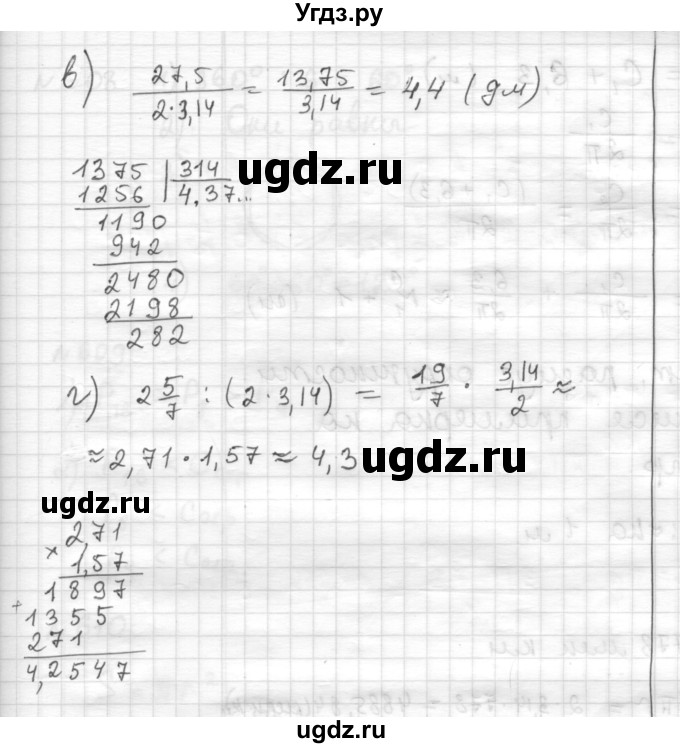 Угдз.ру
в) 27,5 / 2·3,14 = 13,75 / 3,14 = 4,4 (дм)
ugdz.ru
1375 | 314
1256 | 4,37...
1190
942
2480
2198
282
ugdz.ru
ugdz.ru
г) 2 5/7 : (2·3,14) = 19/7 · 3,14/2 ≈
≈ 2,71 · 1,57 ≈ 4,3
ugdz.ru
ugdz.ru
2,71
× 1,57
1897
+ 1355
271
4,2547
ugdz.ru
ugdz.ru